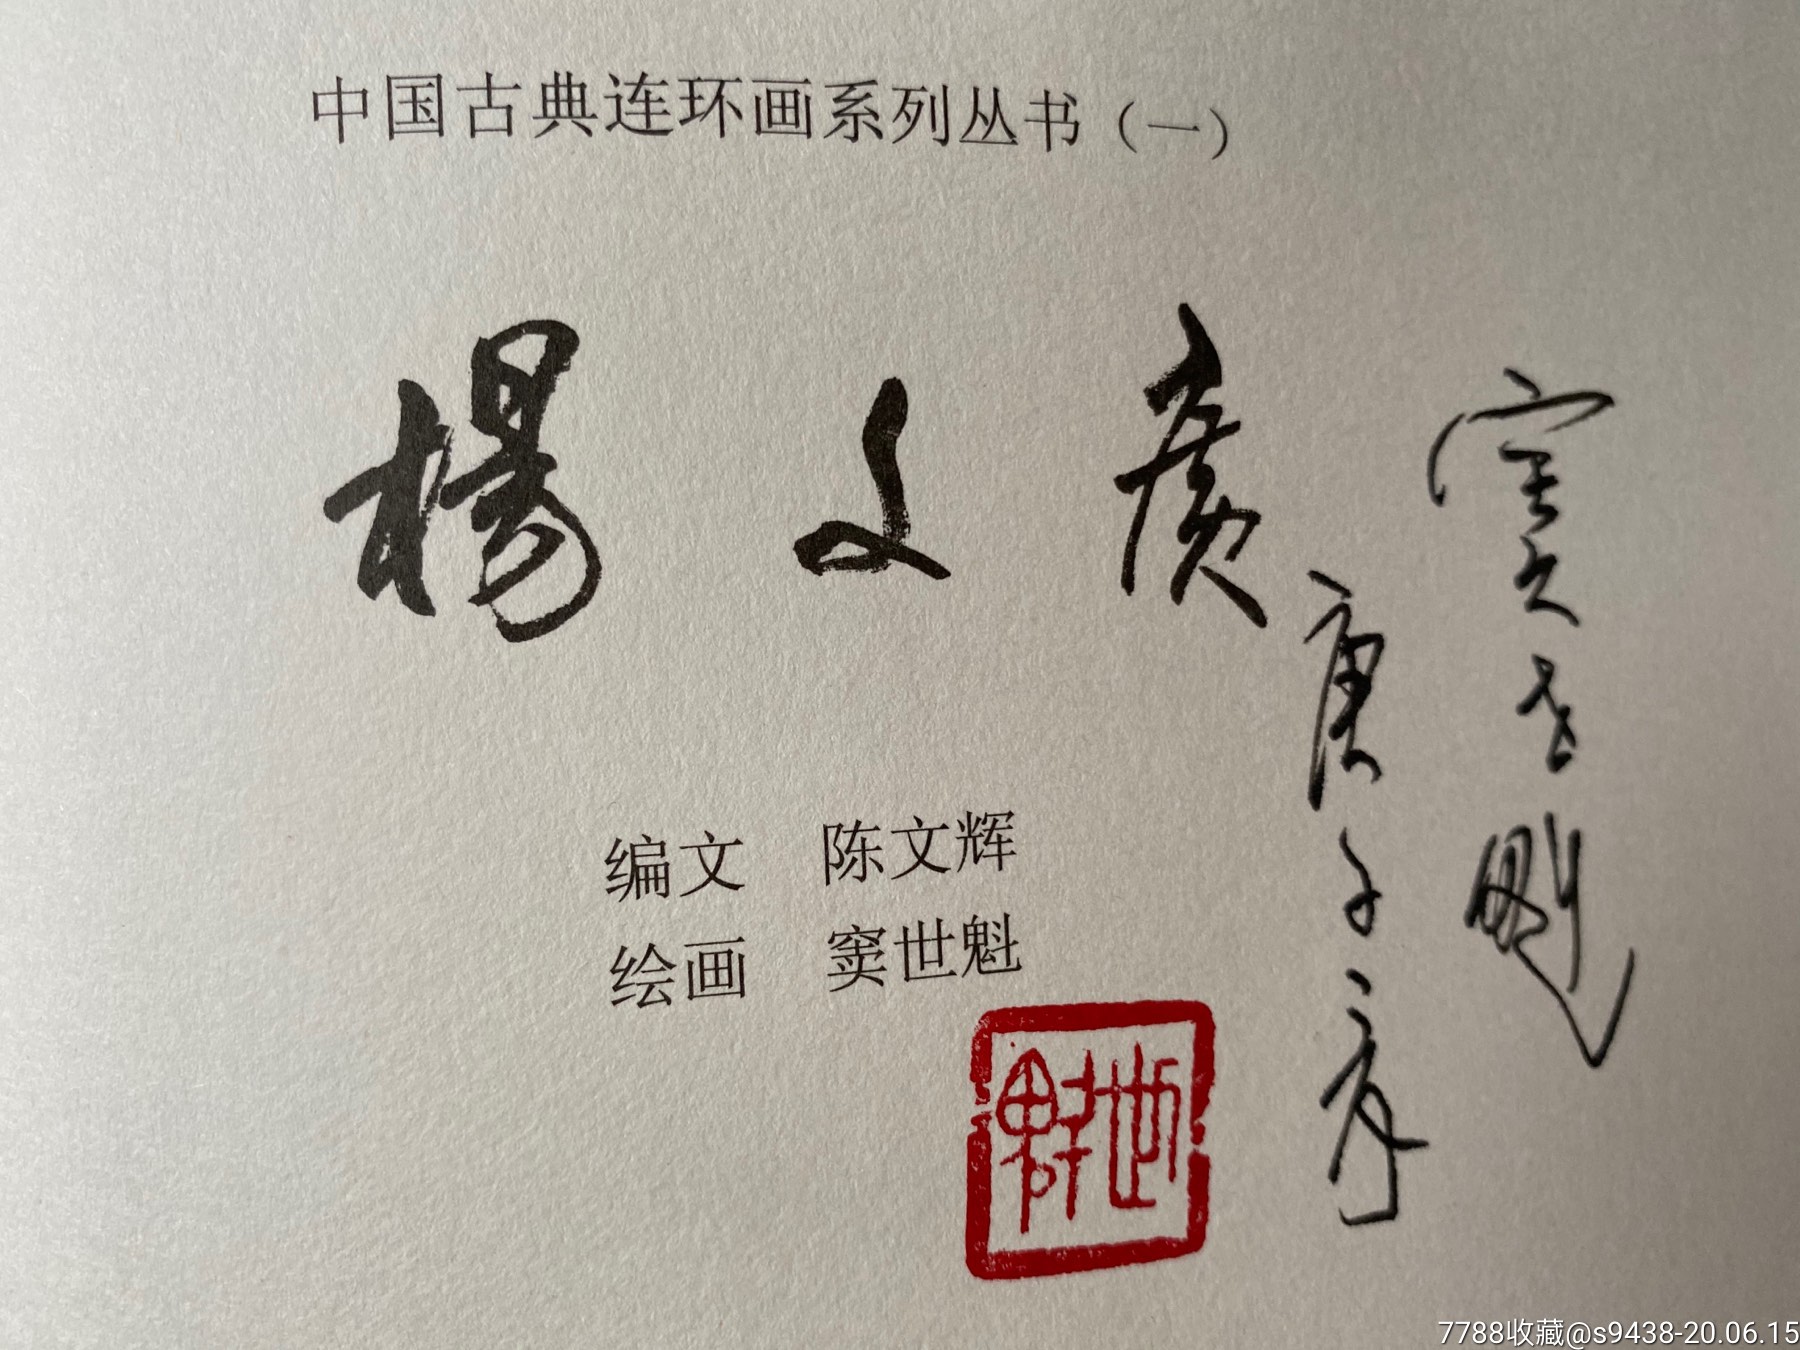 中国古典连环画系列丛书（一）
楊文廣
编文 陈文辉
绘画 窦世魁
窦世魁
庚子序
世魁
7788收藏@s9438-20.06.15